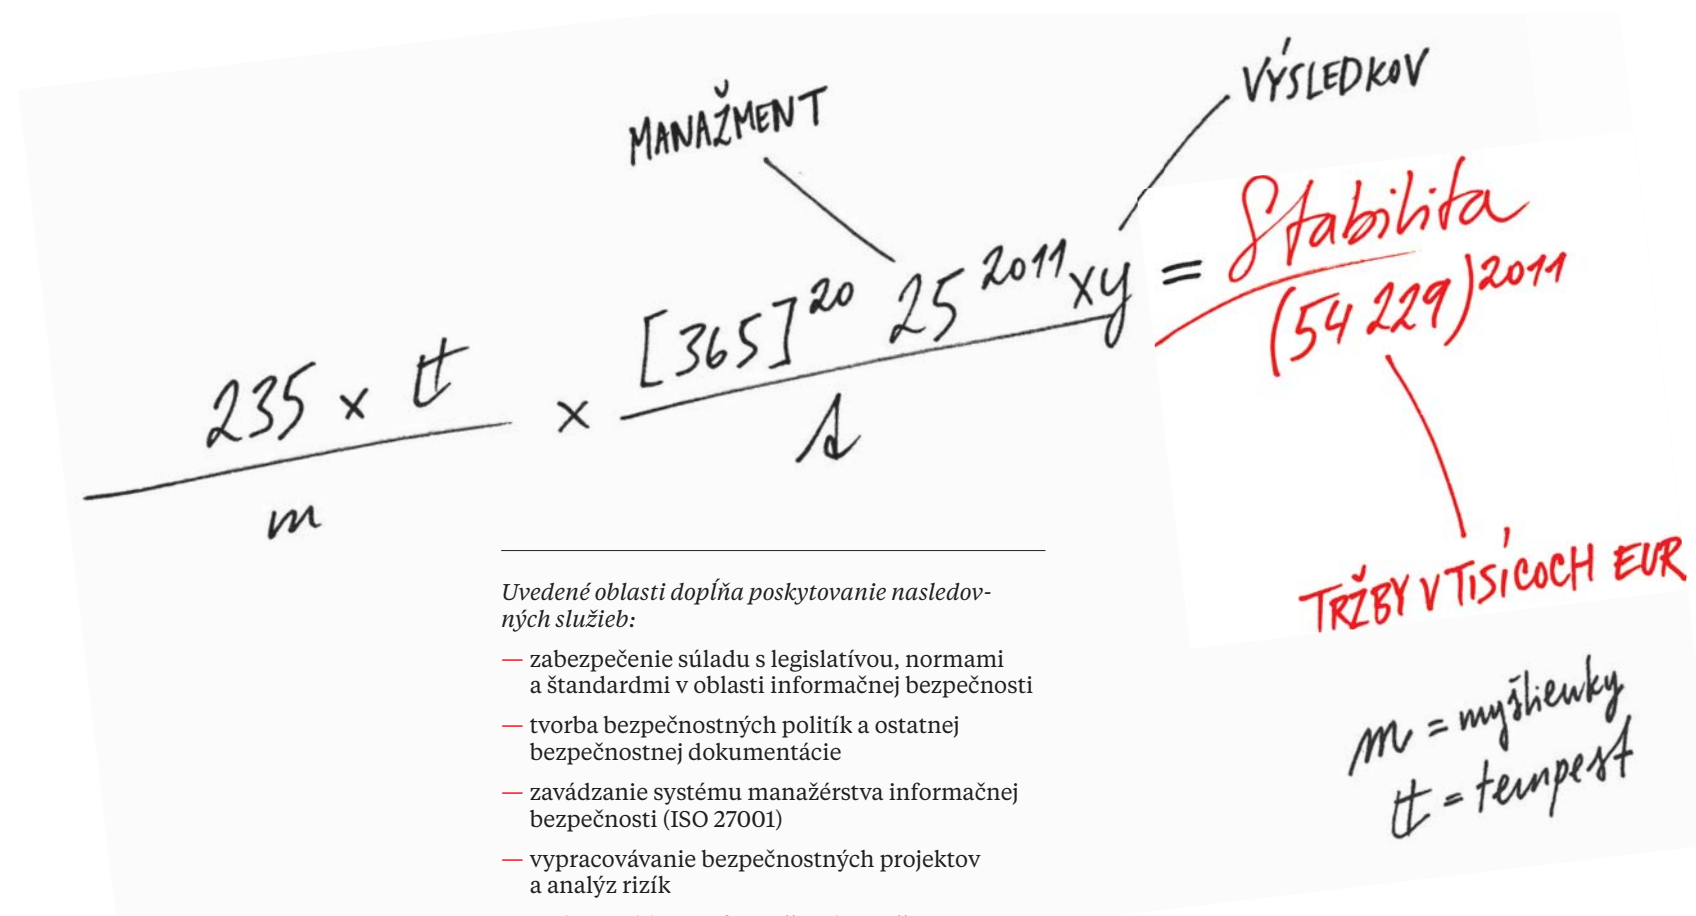 MANAŽMENT
VÝSLEDKOV
235 × tt / m × [365]²⁰ 25²⁰¹¹ xy / s = Stabilita / (54 229)²⁰¹¹
TRŽBY V TISÍCOCH EUR
m = myšlienky
tt = tempest
Uvedené oblasti dopĺňa poskytovanie nasledov-
ných služieb:
— zabezpečenie súladu s legislatívou, normami
a štandardmi v oblasti informačnej bezpečnosti
— tvorba bezpečnostných politík a ostatnej
bezpečnostnej dokumentácie
— zavádzanie systému manažérstva informačnej
bezpečnosti (ISO 27001)
— vypracovávanie bezpečnostných projektov
a analýz rizík